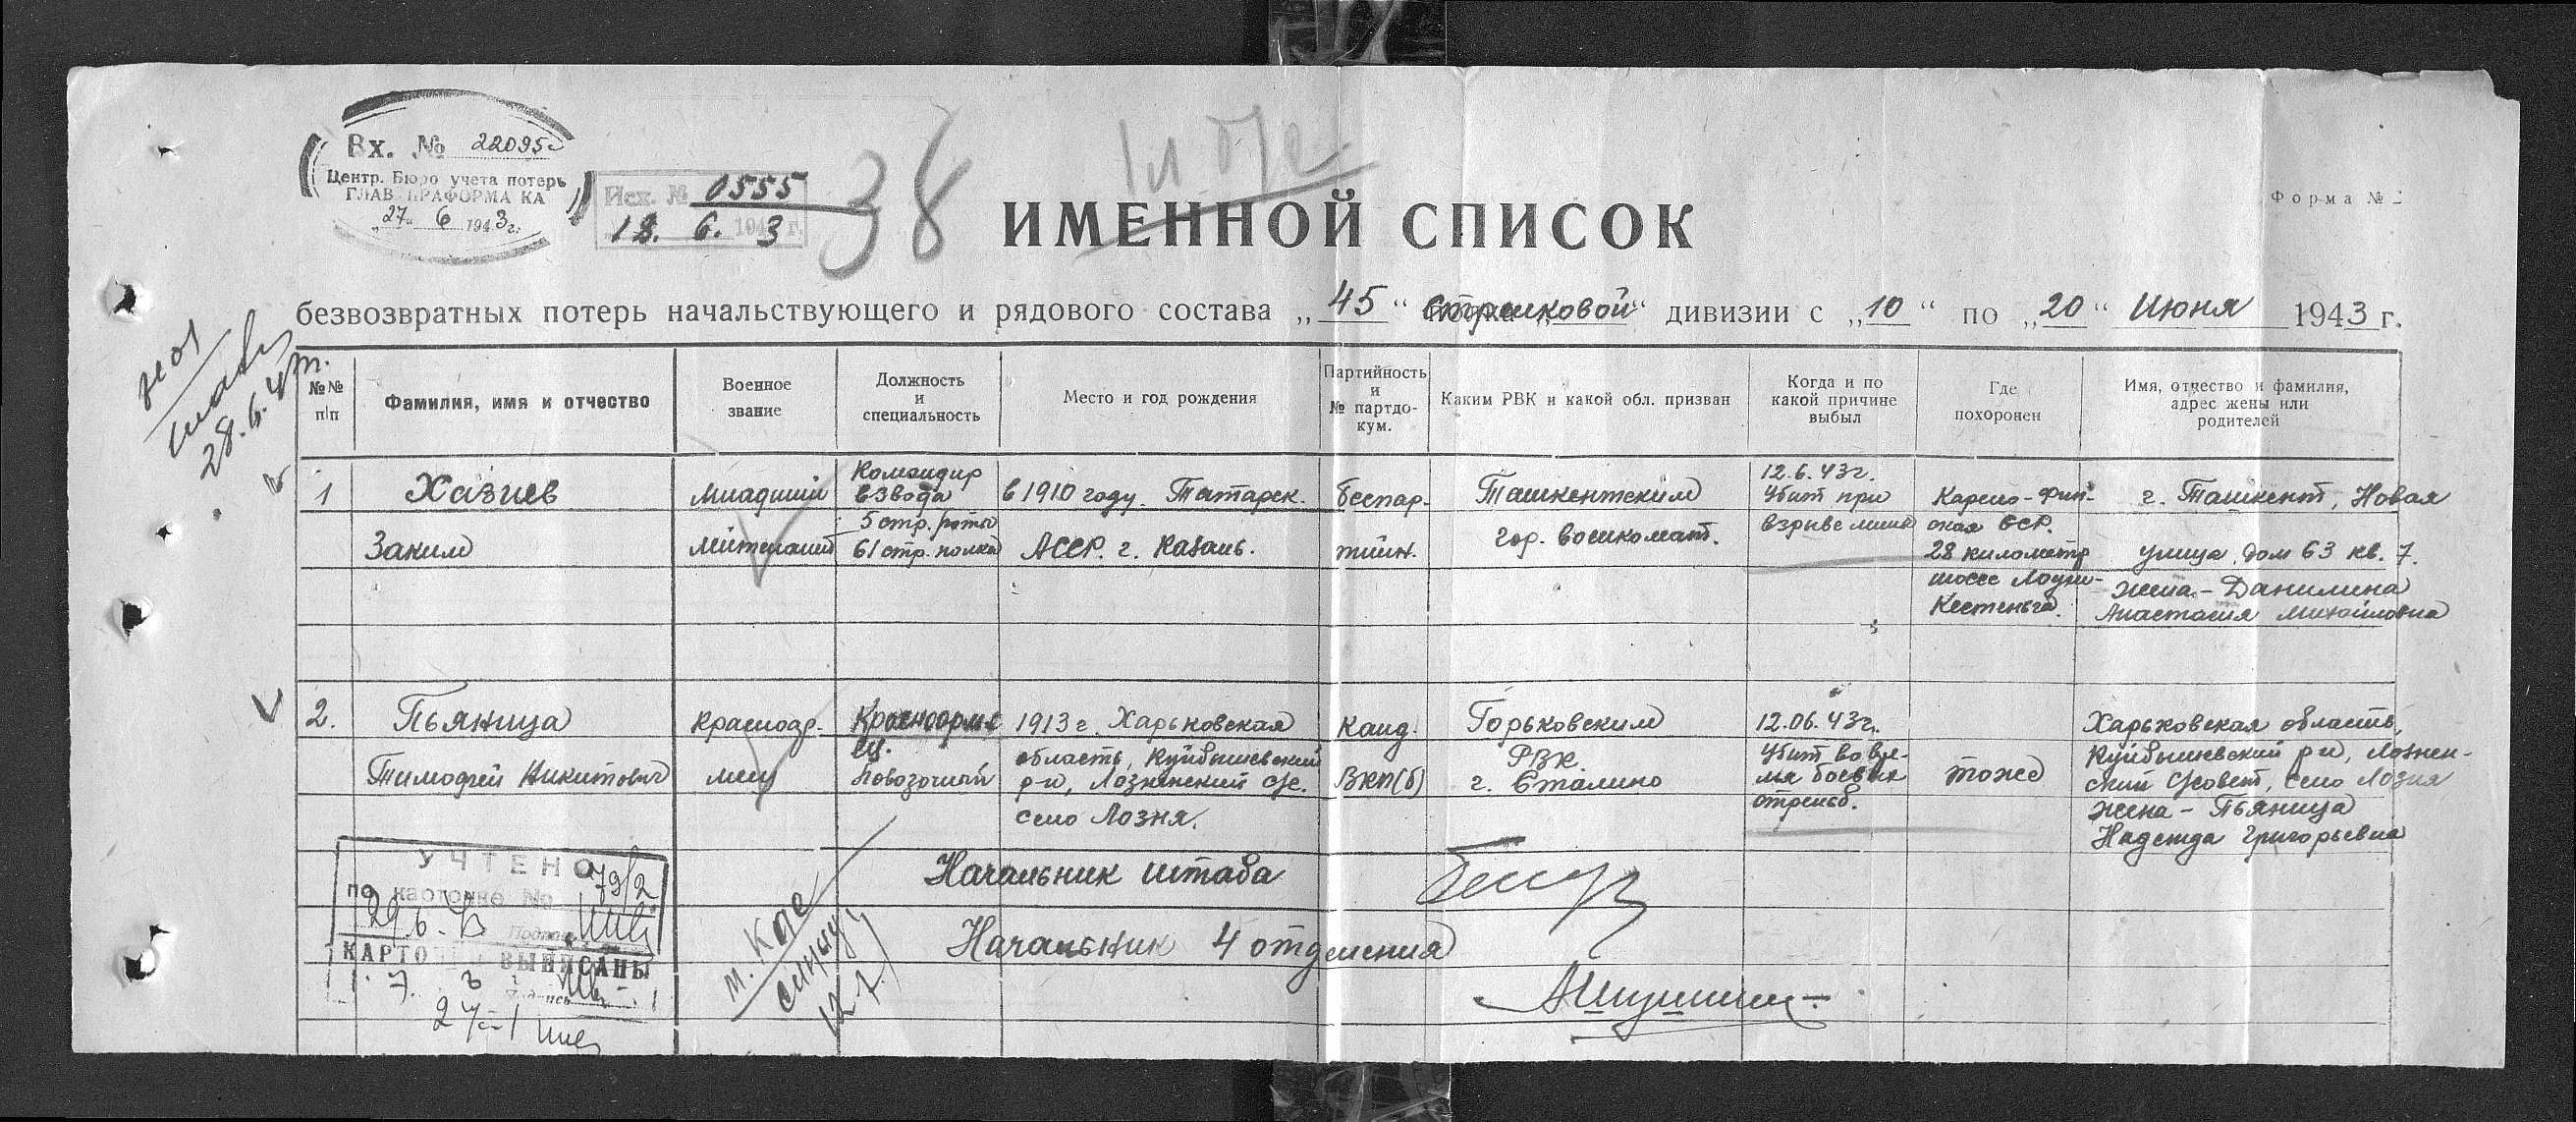 Вх. № 22095с
Центр. Бюро учета потерь
ГЛАВУПРАФОРМА КА
"27" 6 1943 г.
Исх. № 0555
18. 6. 1943 г.
38
Форма № 2
ИМЕННОЙ СПИСОК
безвозвратных потерь начальствующего и рядового состава „45“ стрелковой дивизии с „10“ по „20“ Июня 1943 г.
28.6.43г.
№№ п/п
Фамилия, имя и отчество
Военное звание
Должность и специальность
Место и год рождения
Партийность и № партдокум.
Каким РВК и какой обл. призван
Когда и по какой причине выбыл
Где похоронен
Имя, отчество и фамилия, адрес жены или родителей
1
Хазиев
Заким
Младший
лейтенант
Командир
взвода
5 стр. роты
61 стр. полка
в 1910 году. Татарск.
АССР. г. Казань.
беспар-
тийн.
Ташкентским
гор. военкомат.
12.6.43г.
Убит при
взрыве мины
Карело-Фин-
ская ССР.
28 километр
шоссе Лоухи-
Кестеньга.
г. Ташкент, Новая
улица, дом 63 кв. 7.
жена - Данилина
Анастасия Михайловна
2.
Пьяница
Тимофей Никитович
Красноар-
меец
Красноарме
ец.
Повозочный
1913 г. Харьковская
область, Куйбышевский
р-н, Лознянский с/с.
село Лозня.
Канд.
ВКП(б)
Горьковским
РВК.
г. Сталино
12.06.43г.
Убит во вре-
мя боевых
стрельб.
тоже
Харьковская область,
Куйбышевский р-н, Лознян-
ский с/совет, село Лозня
жена - Пьяница
Надежда Григорьевна
Начальник штаба
Начальник 4 отделения
УЧТЕНО
по карточке № 79/2
29.6.43
Подпись
КАРТОЧКИ ВЫПИСАНЫ
Подпись